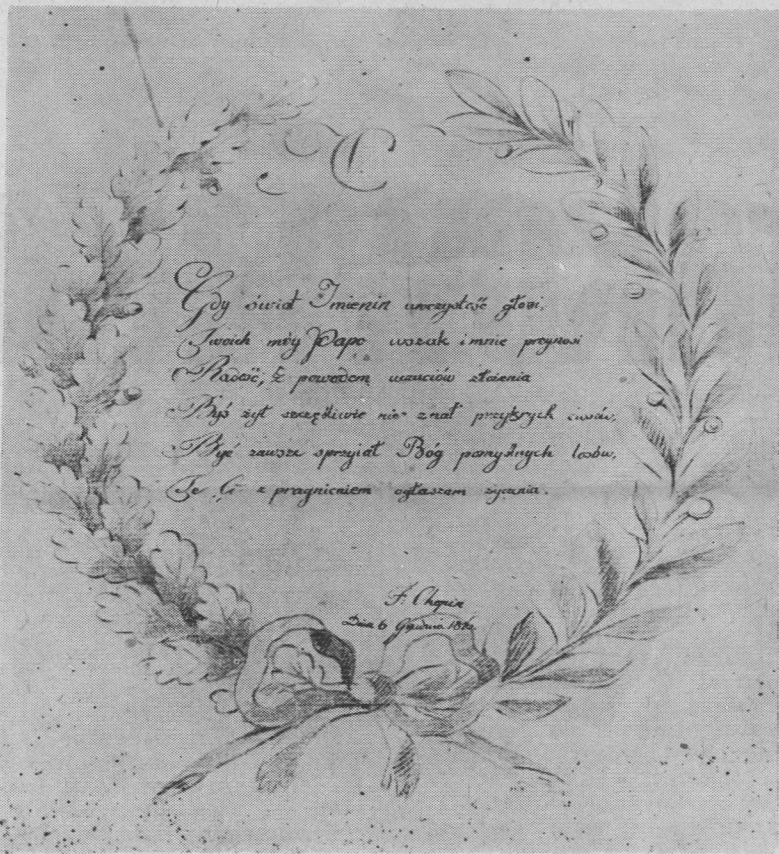 C
Gdy świat Imienin uroczystość głosi,
Twoich mój Papo wszak i mnie przynosi
Radość, z powodem uczuciów złożenia
Byś żył szczęśliwie nie znał przykrych ciosów,
Być zawsze sprzyjał Bóg pomyślnych losów,
Te Ci z pragnieniem ogłaszam życzenia.
F. Chopin
Dnia 6 Grudnia